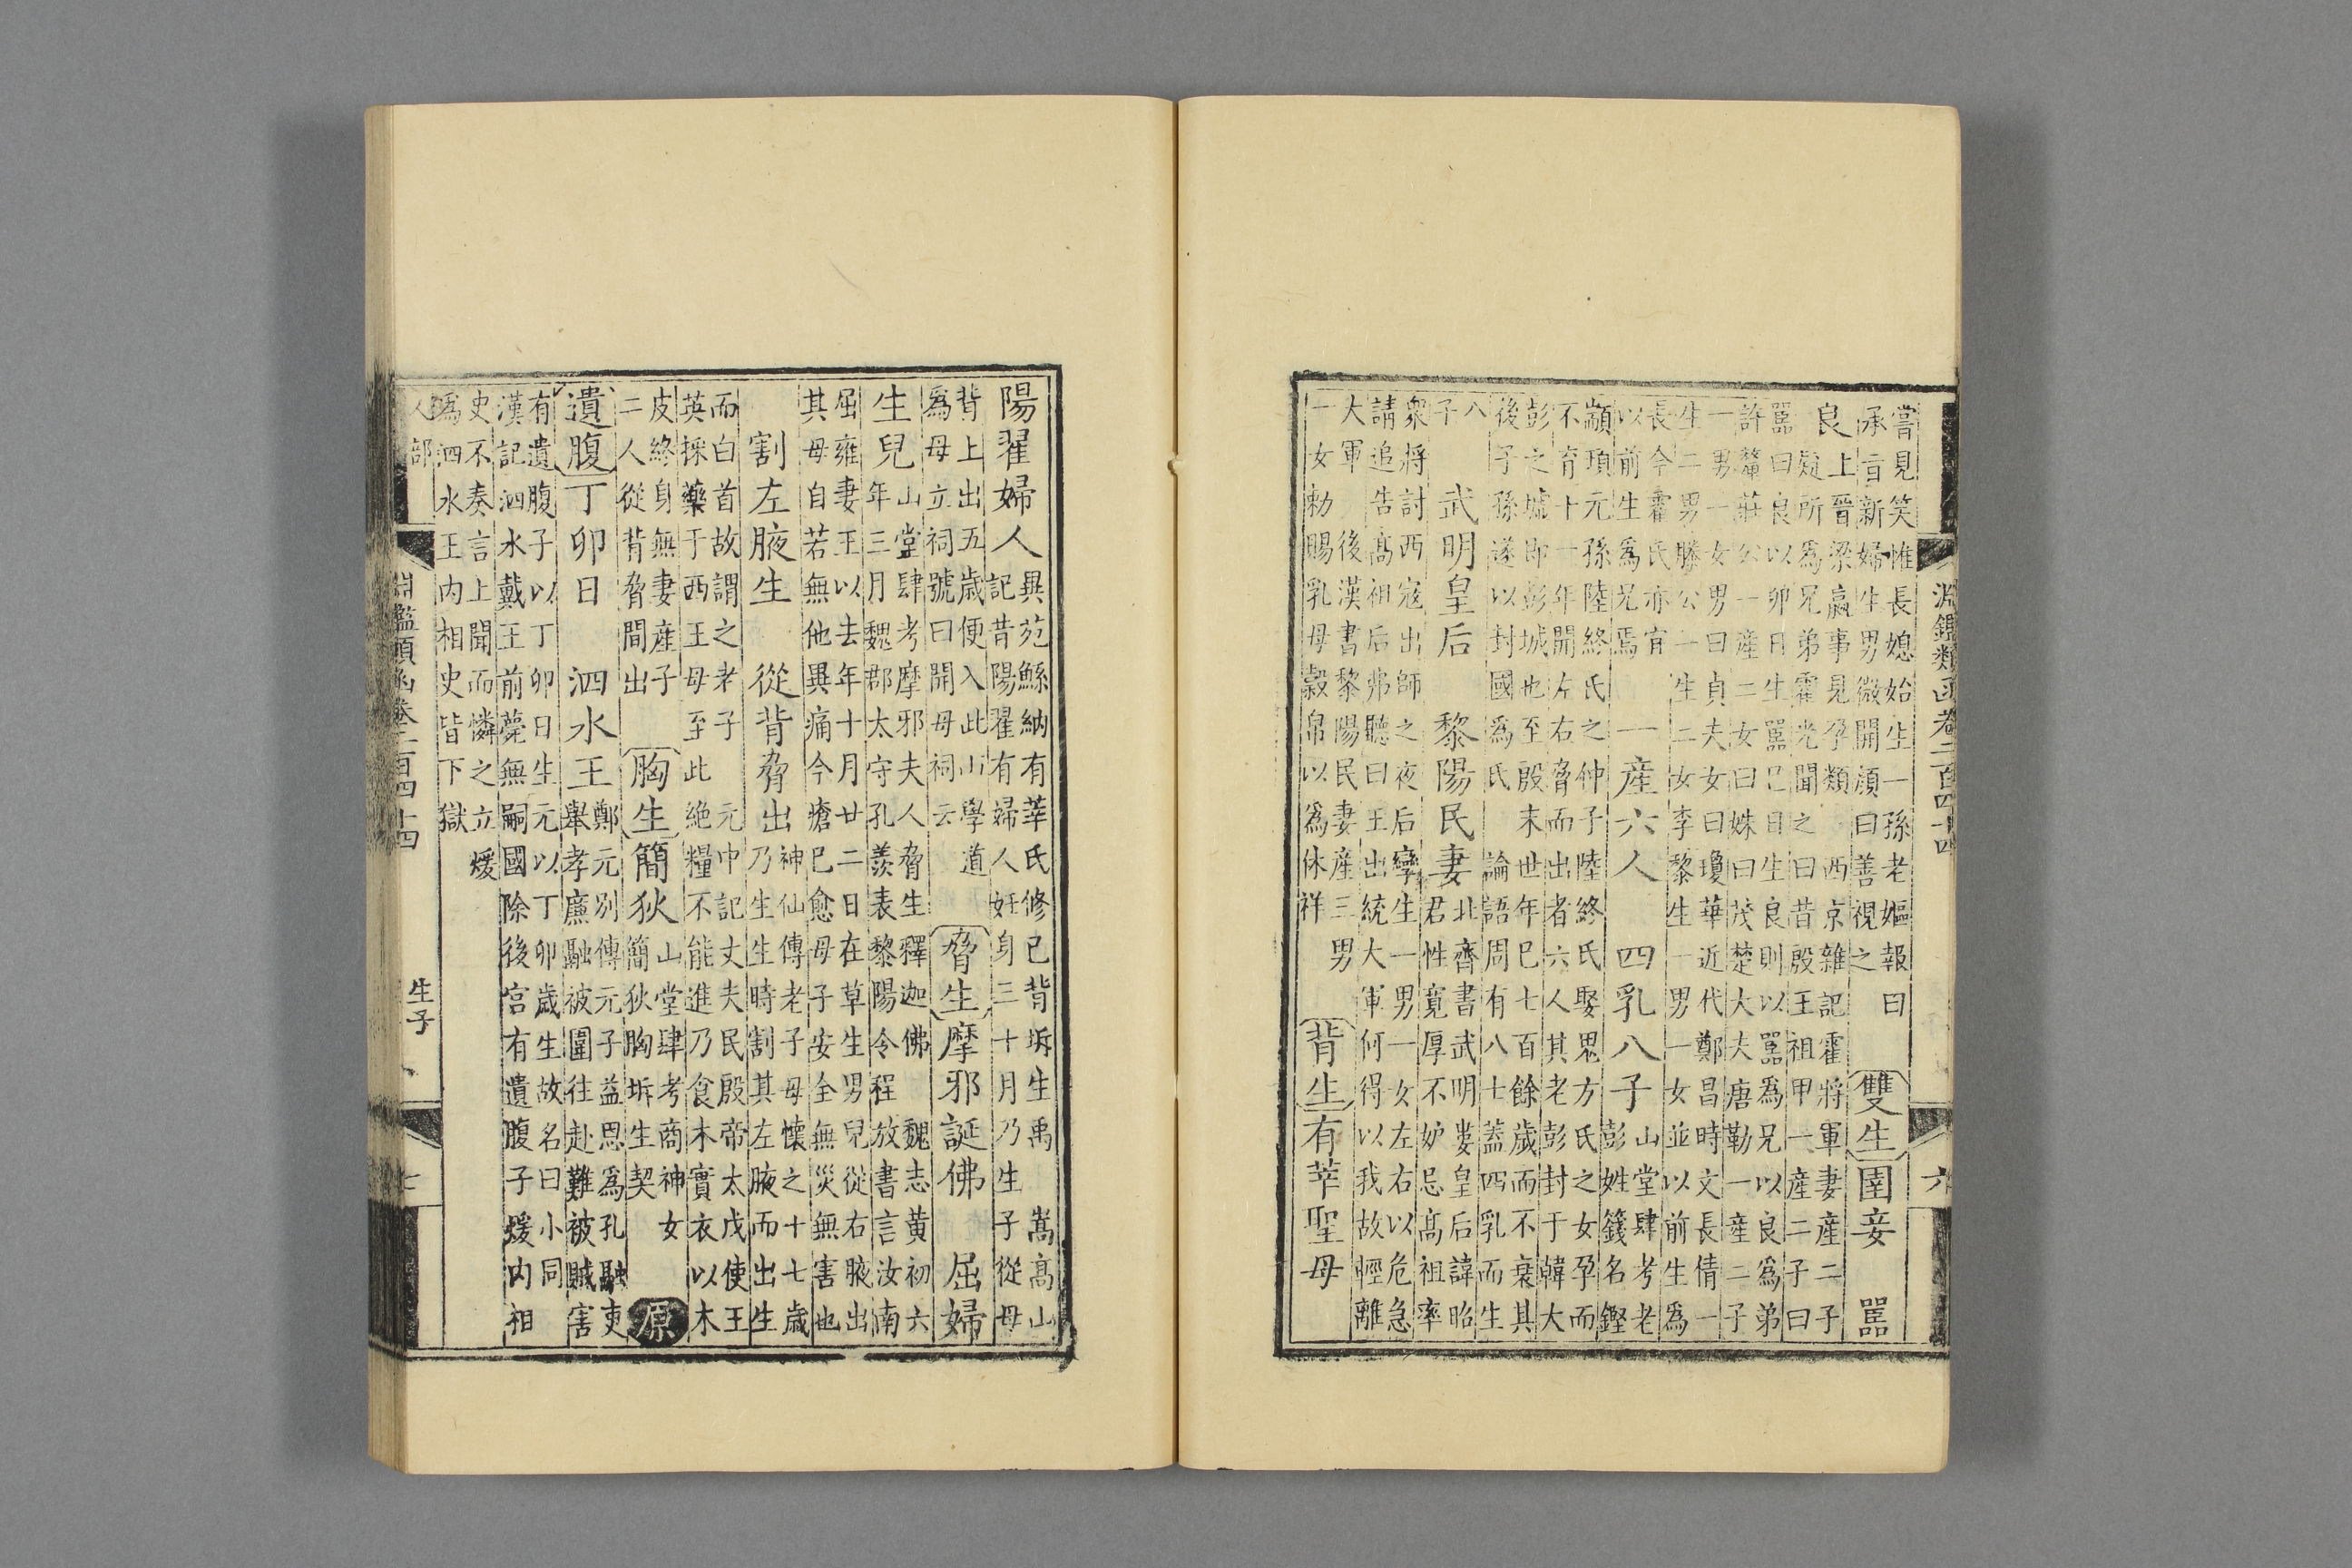 淵鑑類函卷二百四十四 六
嘗見笑惟長媳始生一孫老嫗報曰
承言新婦生男微開顏曰善視之
雙生 圉妾 嚚
良
上晉梁嬴事見孕類 西京雜記霍將軍妻産二子
疑所爲兄弟霍光聞之曰昔殷王祖甲一産二子曰
嚚曰良以卯日生嚚巳日生良則以嚚爲兄以良爲弟
許釐莊公一産二女曰姝曰茂楚大夫唐勒一産二子
一男一女男曰貞夫女曰瓊華近代鄭昌時文長倩一
生二男滕公一生二女李黎生一男一女並以前生爲
長今霍氏亦宜
以前生爲兄焉
一産六人 四乳八子
山堂肆考老
彭姓籛名鏗
顓頊元孫陸終氏之仲子陸終氏娶鬼方氏之女孕而
不育十一年開左右脅而出者六人其老彭封于韓大
彭之墟即彭城也至殷末世年已七百餘歲而不衰其
後子孫遂以封國爲氏 論語周有八士蓋四乳而生
八
子
武明皇后 黎陽民妻
北齊書武明婁皇后諱昭
君性寬厚不妒忌高祖率
衆將討西寇出師之夜后孿生一男一女左右以危急
請追告高祖后弗聽曰王出統大軍何得以我故輕離
大軍 後漢書黎陽民妻産三男
一女勅賜乳母穀帛以爲休祥
背生 有莘聖母
陽翟婦人
異苑鯀納有莘氏修已背坼生禹 嵩高山
記昔陽翟有婦人妊身三十月乃生子從母
背上出五歲便入此山學道
爲母立祠號曰開母祠云
脅生 摩邪誕佛 屈婦
生兒
山堂肆考摩邪夫人脅生釋迦佛 魏志黄初六
年三月魏郡太守孔羨表黎陽令程放書言汝南
屈雍妻王以去年十月廿二日在草生男兒從右腋出
其母自若無他異痛今瘡已愈母子安全無災無害也
割左腋生 從背脅出
神仙傳老子母懷之十七歲
乃生生時割其左腋而出生
而白首故謂之老子 元中記丈夫民殷帝太戊使王
英採藥于西王母至此絶糧不能進乃食木實衣以木
皮終身無妻産子
二人從背脅間出
胸生 簡狄
山堂肆考商神女
簡狄胸坼生契
原
遺腹 丁卯日 泗水王
鄭元别傳元子益恩爲孔融吏
舉孝廉融被圍往赴難被賊害
有遺腹子以丁卯日生元以丁卯歲生故名曰小同
漢記泗水戴王前薨無嗣國除後宫有遺腹子煖内相
史不奏言上聞而憐之立煖
爲泗水王内相史皆下獄
人部 淵鑑類函卷二百四十四 生子 七